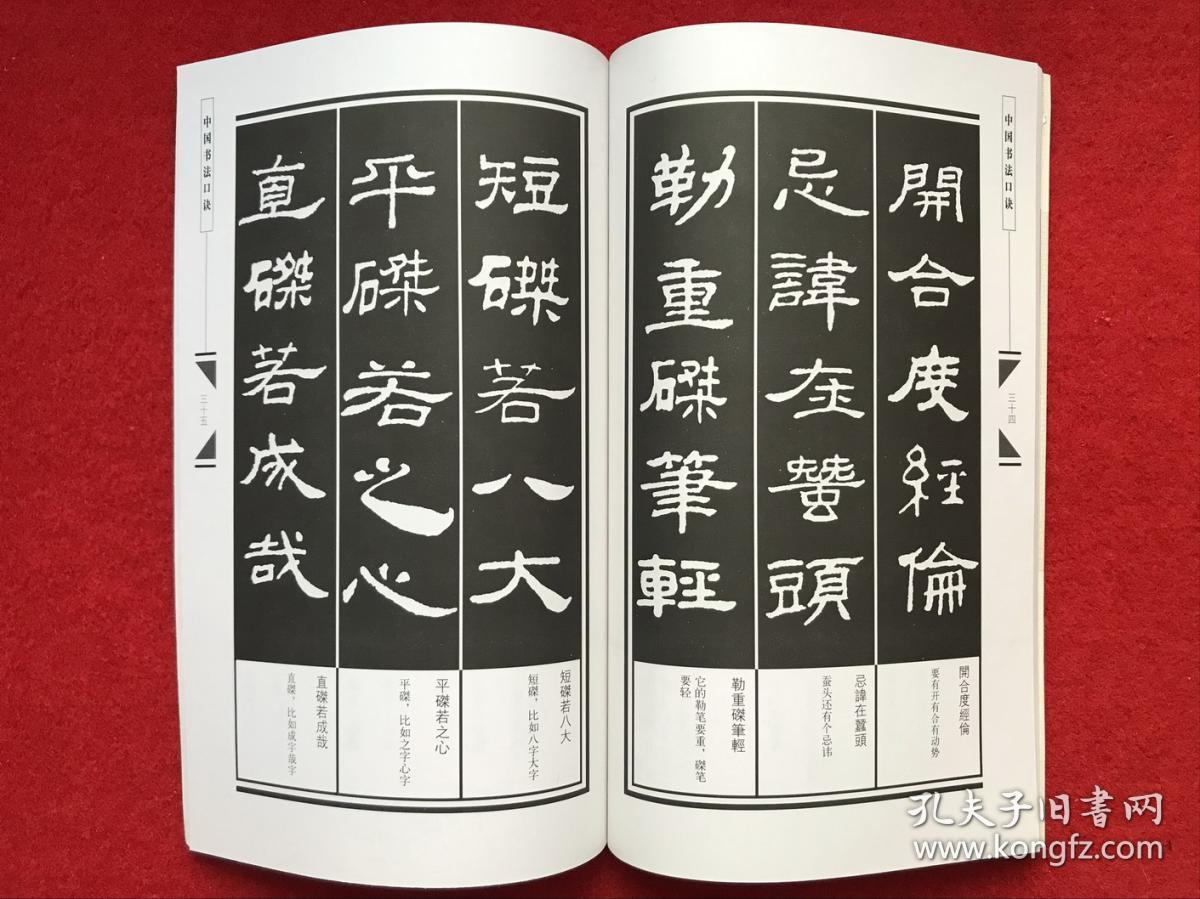 中国书法口诀
三十四
開合度經倫
忌諱在蠶頭
勒重磔筆輕
開合度經倫
要有开有合有动势
忌諱在蠶頭
蚕头还有个忌讳
勒重磔筆輕
它的勒笔要重，磔笔
要轻
短磔若八大
平磔若之心
直磔若成哉
短磔若八大
短磔，比如八字大字
平磔若之心
平磔，比如之字心字
直磔若成哉
直磔，比如成字哉字
中国书法口诀
三十五
孔夫子旧书网
www.kongfz.com